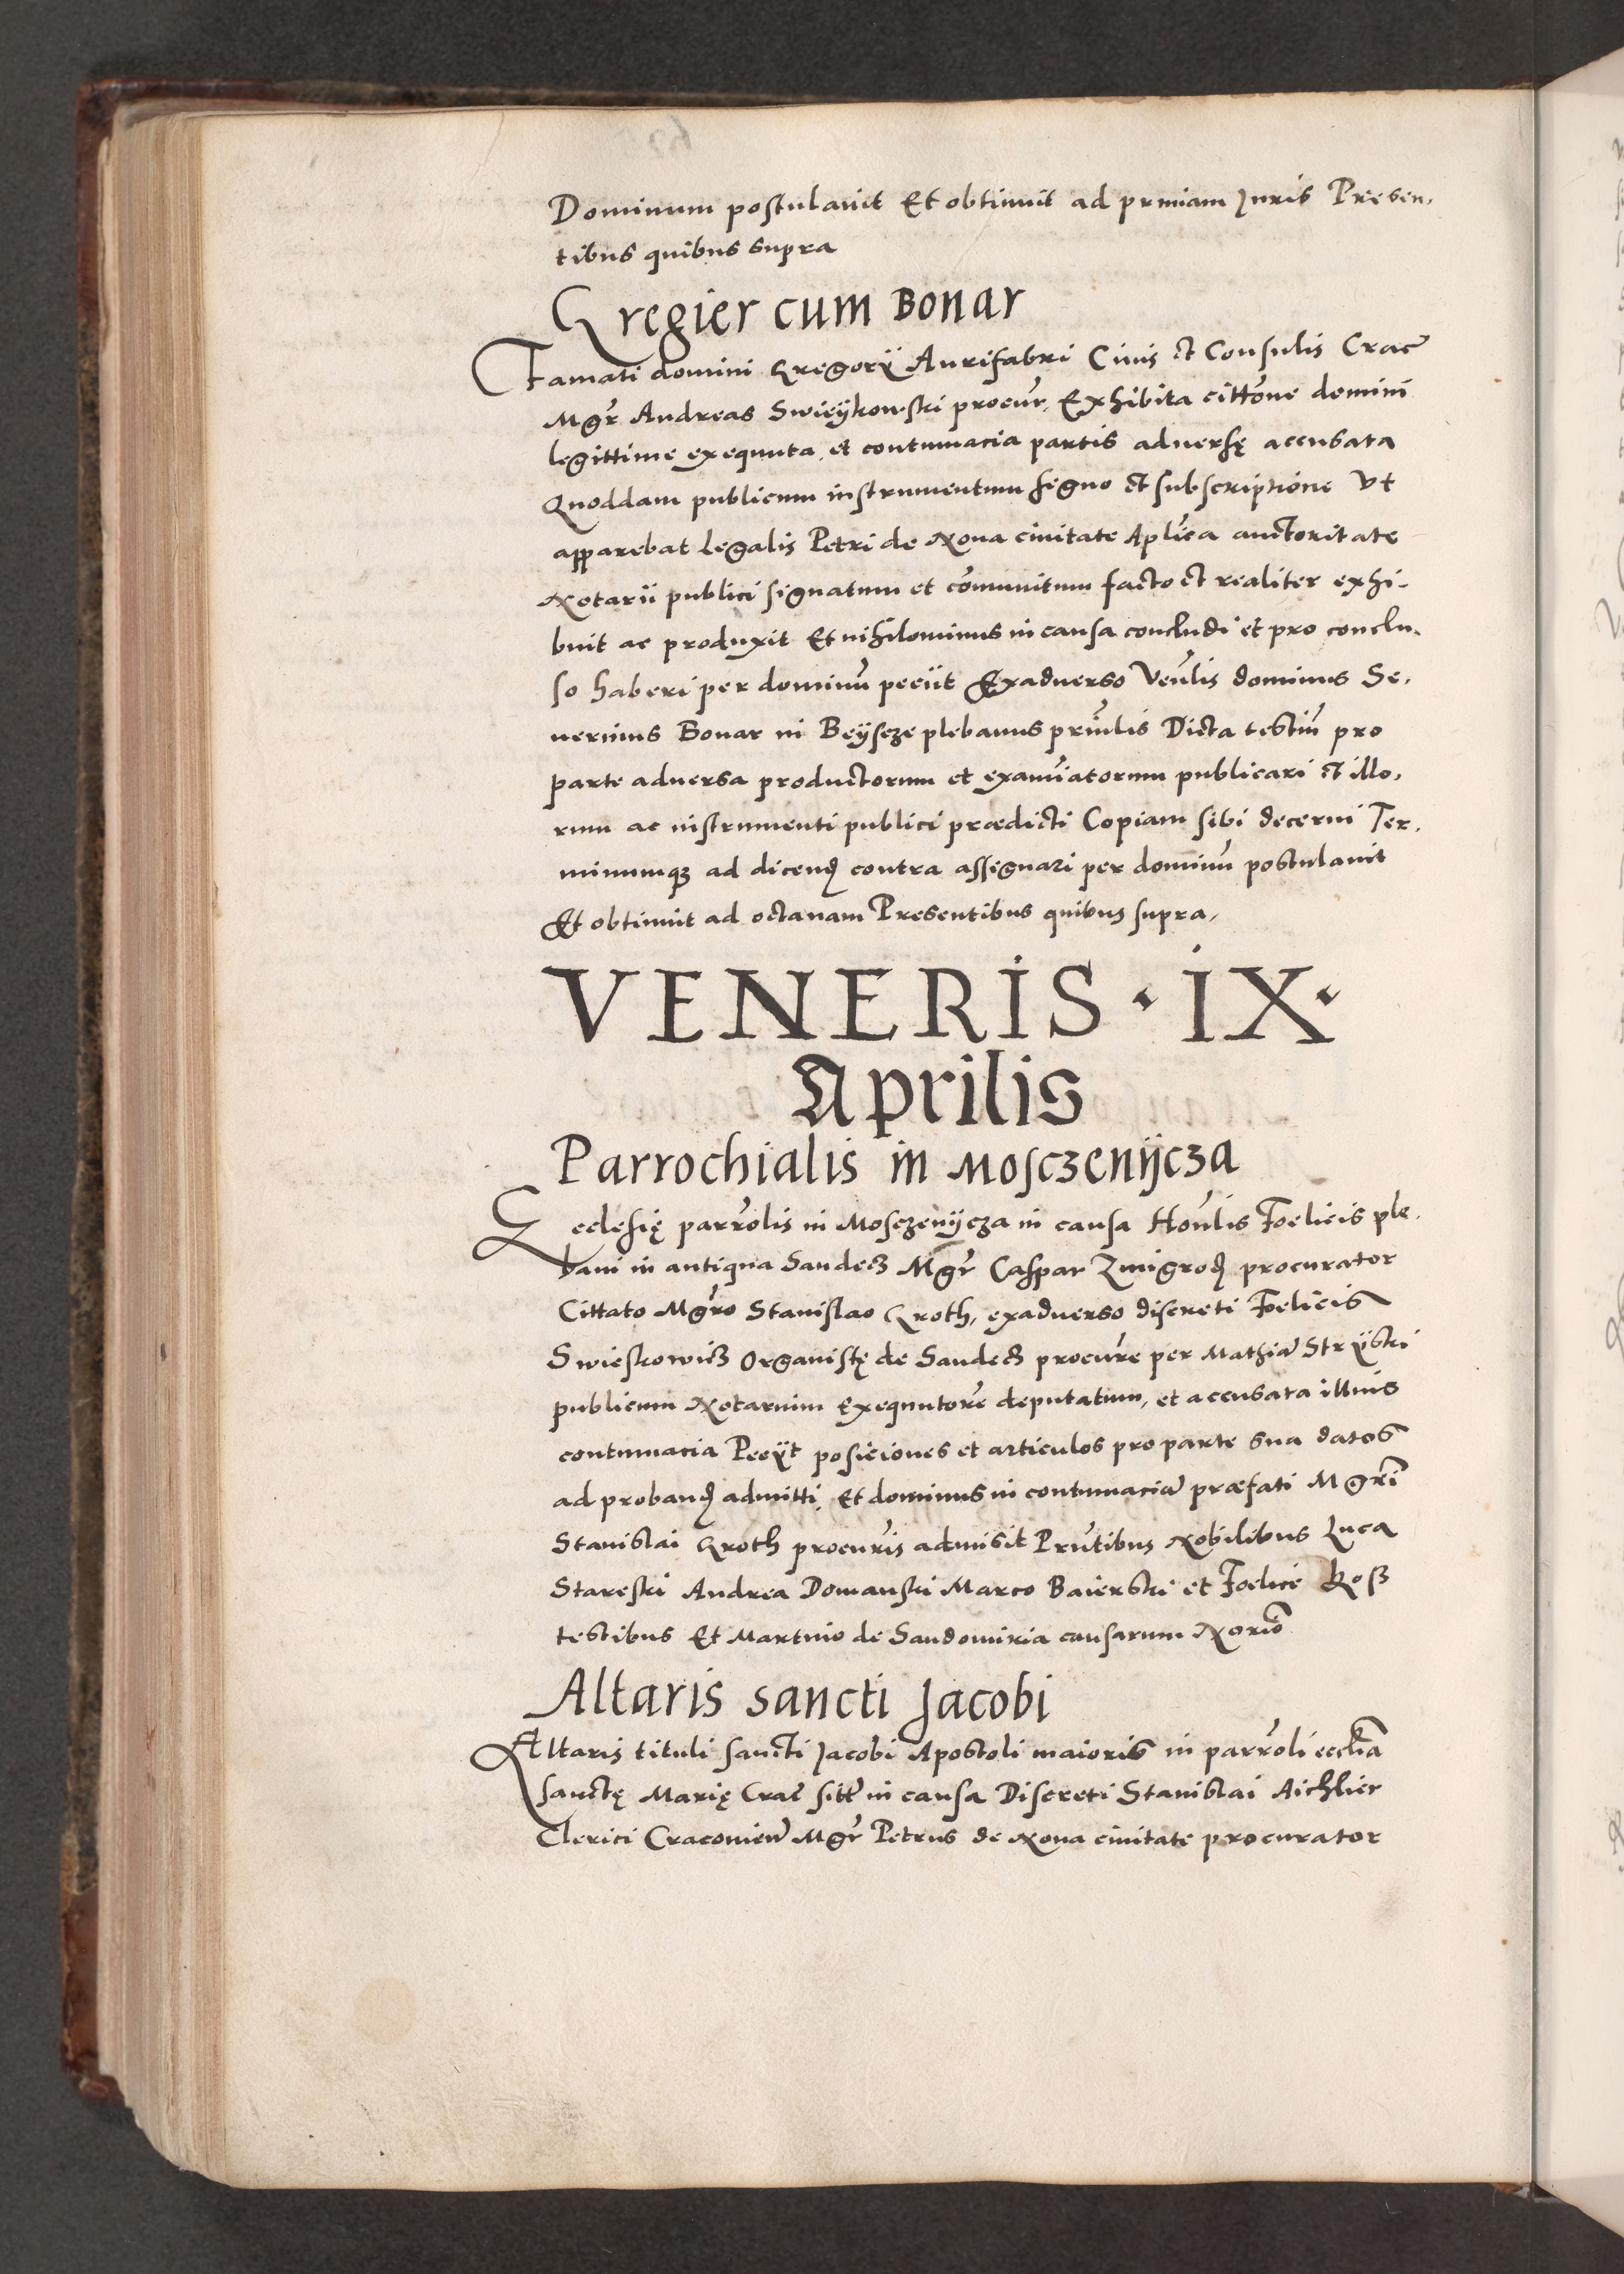 Dominum postulavit Et obtinuit ad prmiam Juris Presen,
tibus quibus supra
Gregier cum Bonar
Famati domini Gregorÿ Aurifabri Civis et Consulis Crac̃
Mgr̃ Andreas Swieÿkowski procur̃, Exhibita citt̃one domini
legittime exequuta, et contumacia partis adversę accusata
Quoddam publicum instrumentum signo et subscriptione Vt
apparebat legalis Petri de Nova civitate Apl̃ica auctoritate
Notarii publici signatum et com̃unitum facto et realiter exhi-
buit ac produxit Et nihilominus in causa concludi et pro conclu,
so haberi per dominũ peciit Exadverso Ven̄lis dominus Se,
verinus Bonar in Beÿscze plebanus prin̄lis Dicta testiũ pro
parte adversa productorum et exam̃iatorum publicari et illo,
rum ac instrumenti publici prædicti Copiam sibi decerni Ter,
minumqȝ ad dicend̨ contra assignari per dominũ postulavit
Et obtinuit ad octavam Presentibus quibus supra,
VENERIS · IX ·
Aprilis
Parrochialis in Mosczenÿcza
Ecclesię parr̃olis in Mosczenÿcza in causa Hon̄lis Foelicis ple,
bani in antiqua Sandecz Mgr̃ Caspar Zmigrod̨ procurator
Cittato Mgr̃o Stanislao Groth, exadverso discreti Foelicis
Swieskowicz Organistę de Sandecz procur̃e per Mathiã Strÿski
publicum Notarium Exequutorẽ deputatum, et accusata illius
contumacia Pecÿt posiciones et articulos pro parte sua datos
ad proband̨ admitti, Et dominus in contumaciã præfati Mgrĩ
Stanislai Groth procur̃is admisit Prñtibus Nobilibus Luca
Stareski Andrea Domanski Marco Baierski et Foelice Kosz
testibus Et Martino de Sandomiria causarum Noriõ
Altaris sancti Jacobi
Altaris tituli sancti Jacobi Apostoli maioris in parr̃oli eccliã
sanctę Marię Crac̃ sitt̃ in causa Discreti Stanislai Aichlier
Clerici Cracovieñ Mgr̃ Petrus de Nova civitate procurator